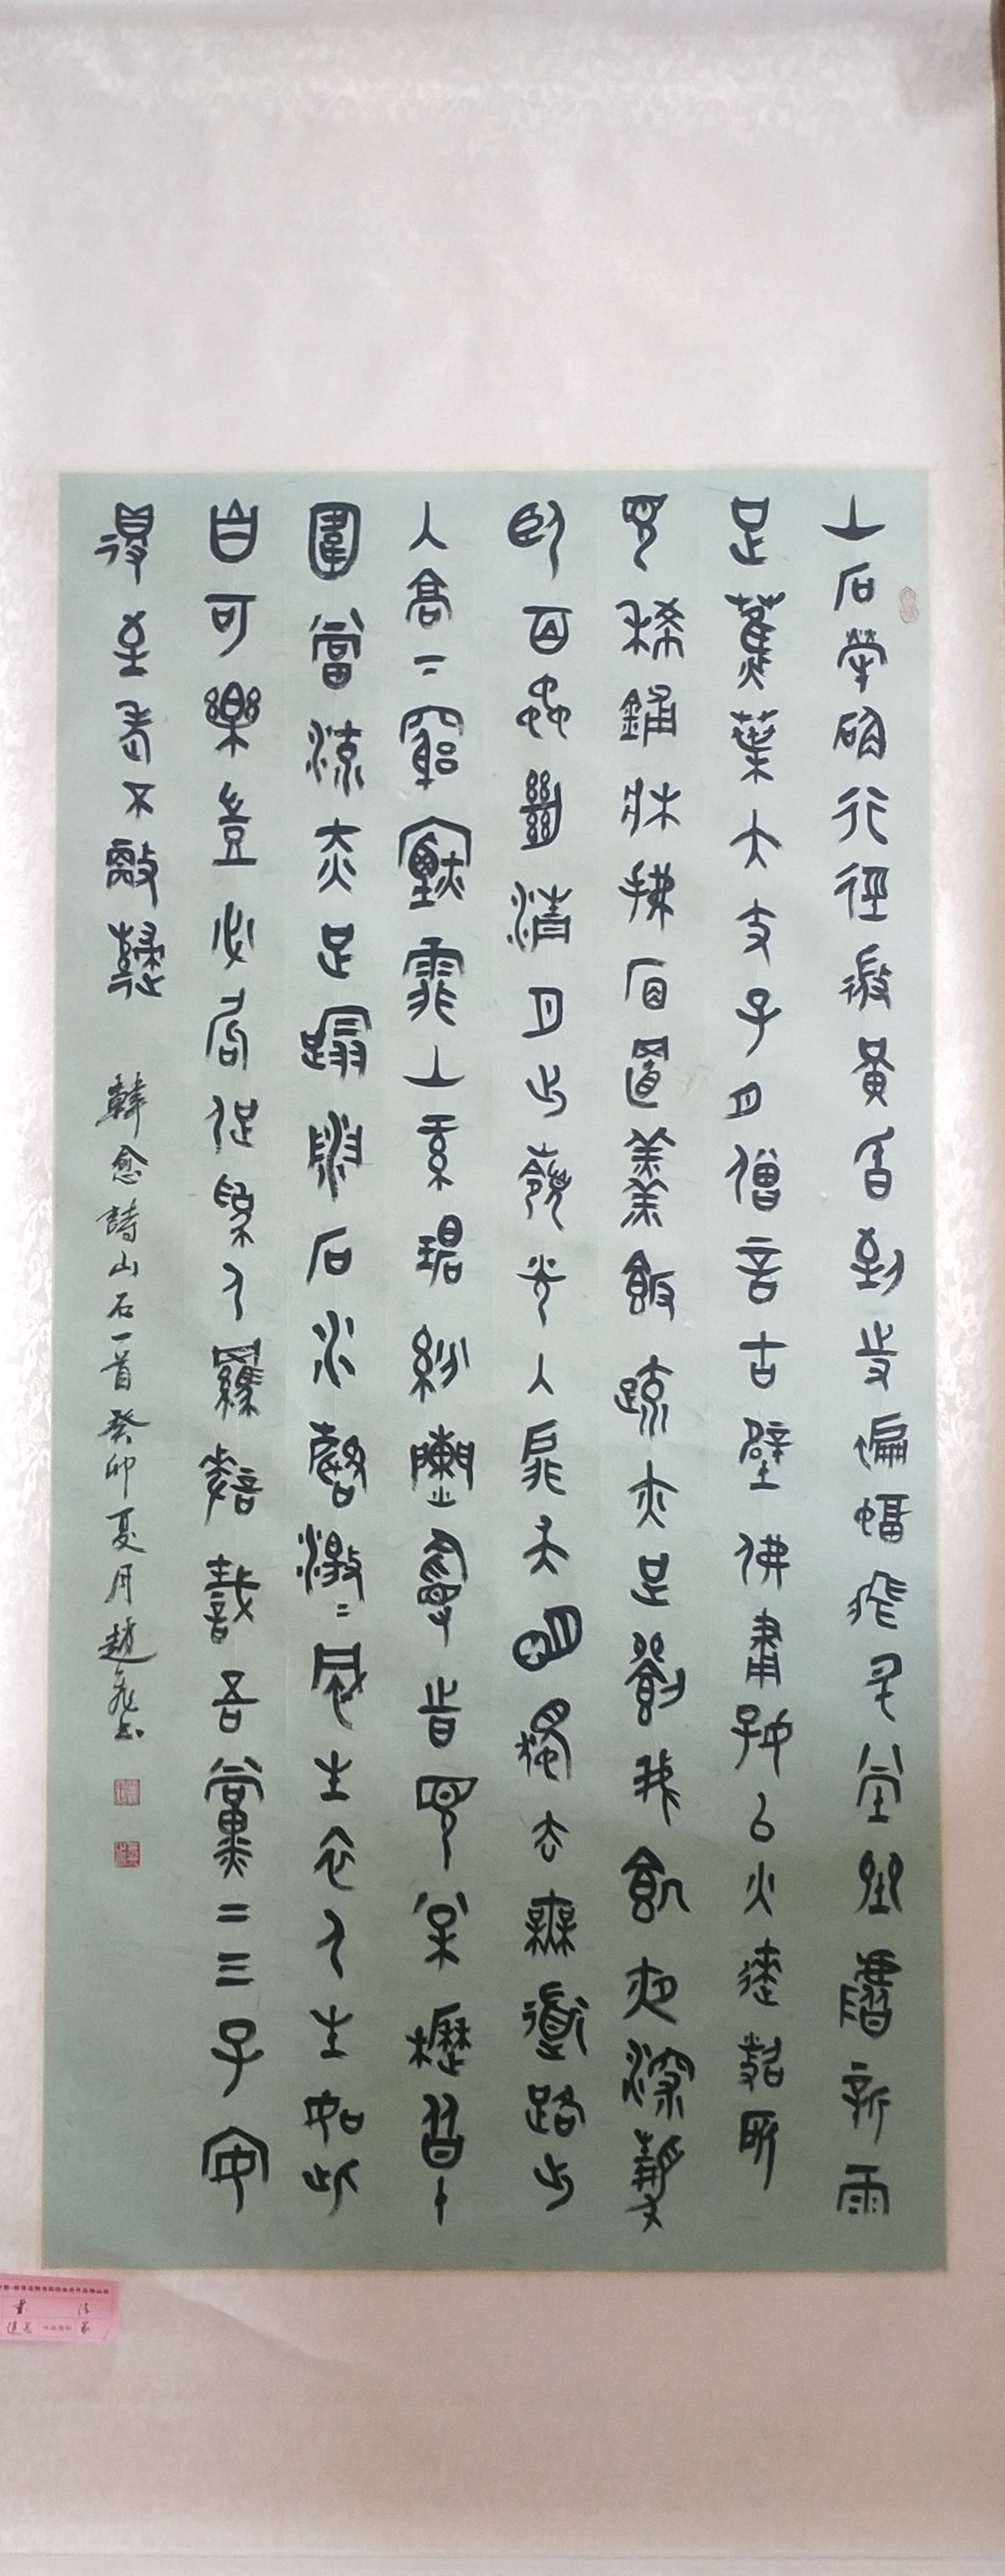 山石犖确行徑微黃昏到寺蝙蝠飛升堂坐階新雨
足蕉葉大支子肥僧言古壁佛畫好以火來照所
見稀鋪床拂席置羹飯疏亦足飽我飢夜深靜
臥百蟲絕清月出嶺光入扉天明獨去無道路出
入高下窮煙霏山紅碧紛爛漫時見松櫪皆十
圍當流赤足蹋澗石水聲激〻風生衣人生如此
自可樂豈必局促為人羈嗟哉吾黨二三子安
得至老不更歸 韓愈詩山石一首癸卯夏月趙 書